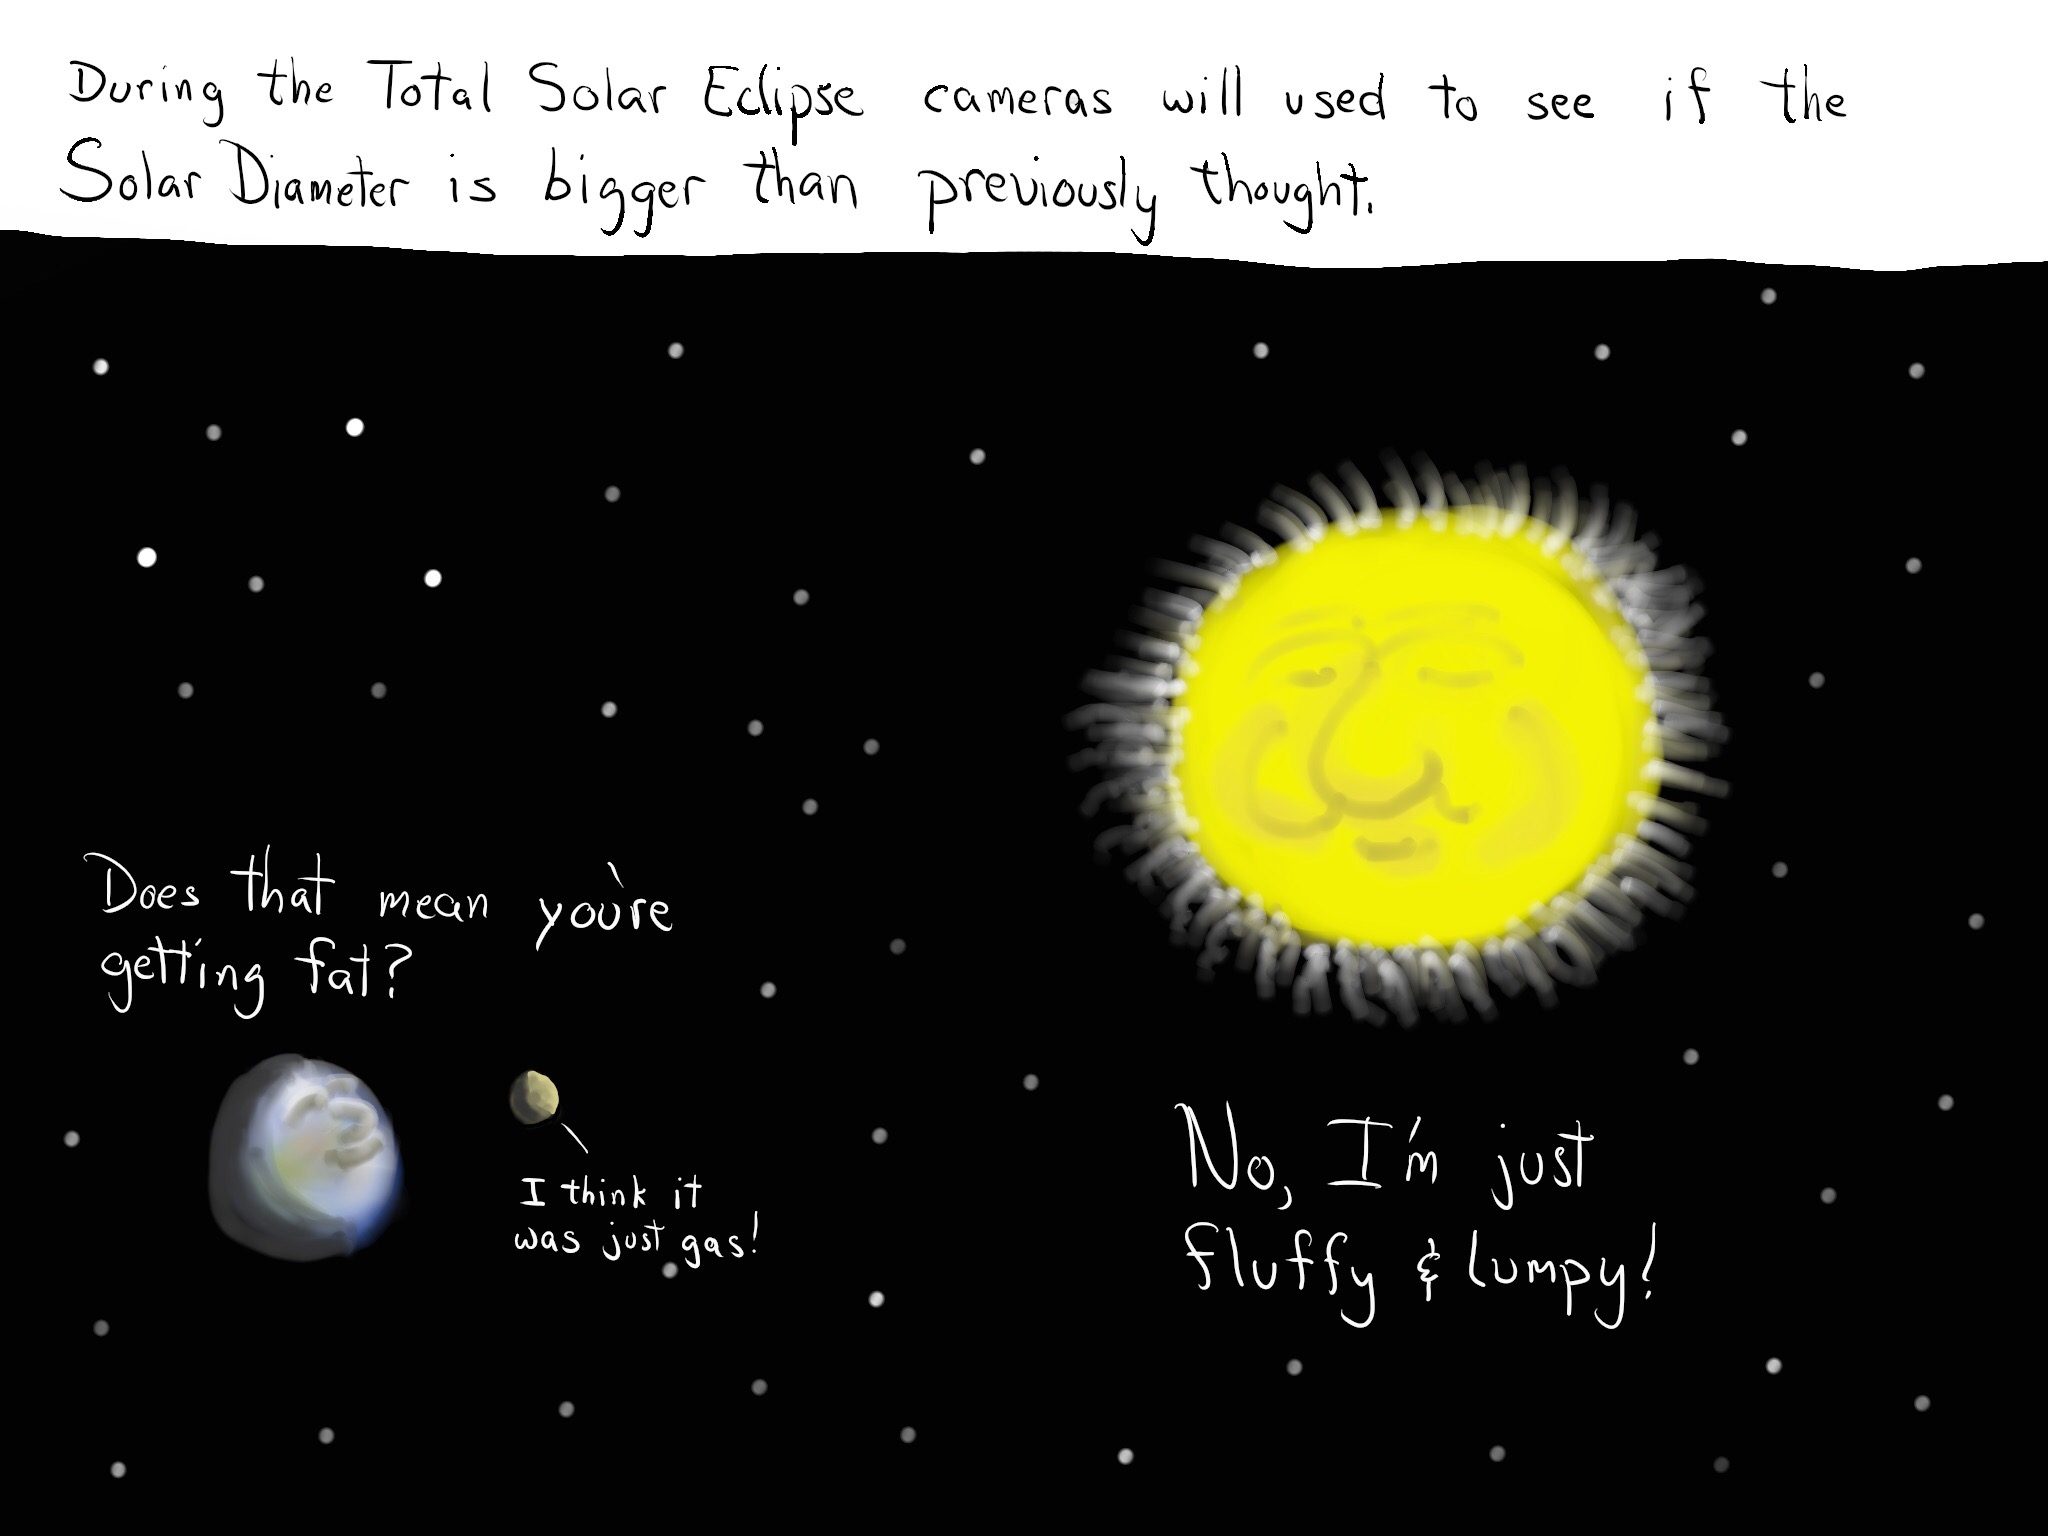 During the Total Solar Eclipse cameras will used to see if the
Solar Diameter is bigger than previously thought.
Does that mean you're
getting fat?
I think it
was just gas!
No, I'm just
fluffy & lumpy!